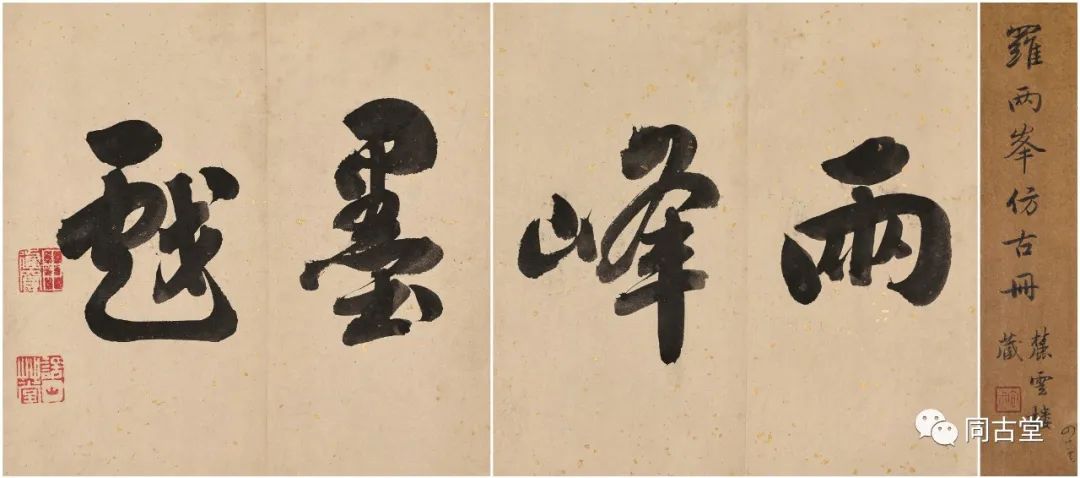 羅两峯仿古冊
麓雲楼
藏
兩峰墨戲
同古堂